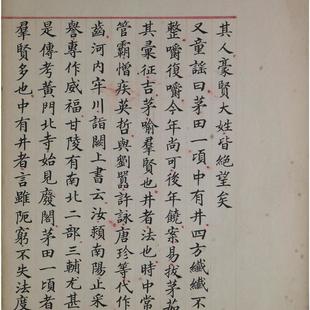 其人豪賢大姓皆絕望矣
又童謠曰茅田一頃中有井四方纖纖不
整嚼復嚼今年尚可後年饒案易拔茅茹
其彙征吉茅喻羣賢也井者法也時中常
管霸憎疾英哲與劉囂許詠唐珍等代作
齒河內牢川詣闕上書云汝潁南陽止采
譽專作威福甘陵有南北二部三輔尤甚
是傳考黃門北寺始見廢閣茅田一頃者
羣賢多也中有井者言雖阨窮不失法度